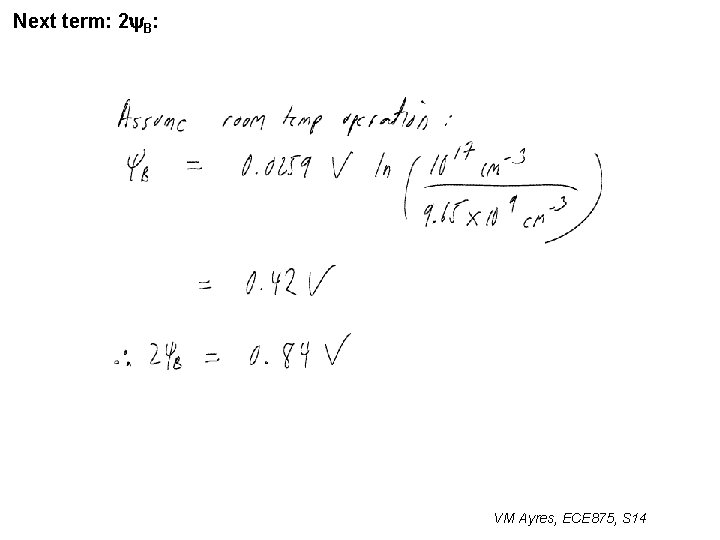 Next term: 2ψB:
Assume room temp operation:
ψB = 0.0259 V ln (10^17 cm^-3 / 9.65 × 10^9 cm^-3)
= 0.42 V
∴ 2ψB = 0.84 V
VM Ayres, ECE875, S14